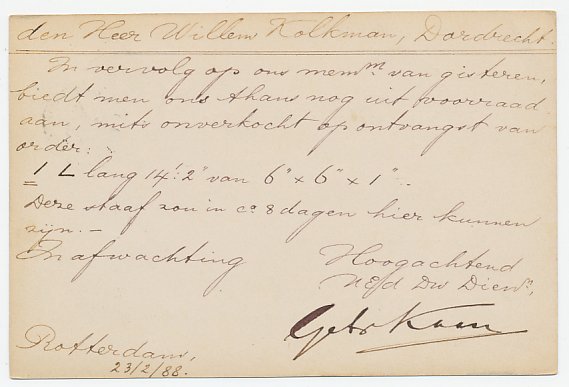 den Heer Willem Kolkman, Dordrecht.
In vervolg op ons mem^m van gisteren,
biedt men ons thans nog uit voorraad
aan, mits onverkocht op ontvangst van
order:
1 L lang 14': 2" van 6" x 6" x 1".
Deze staaf zou in ca 8 dagen hier kunnen
zijn. –
In afwachting
Hoogachtend
UEd Dw Dien^n,
Gebr
Rotterdam,
23/2/88.